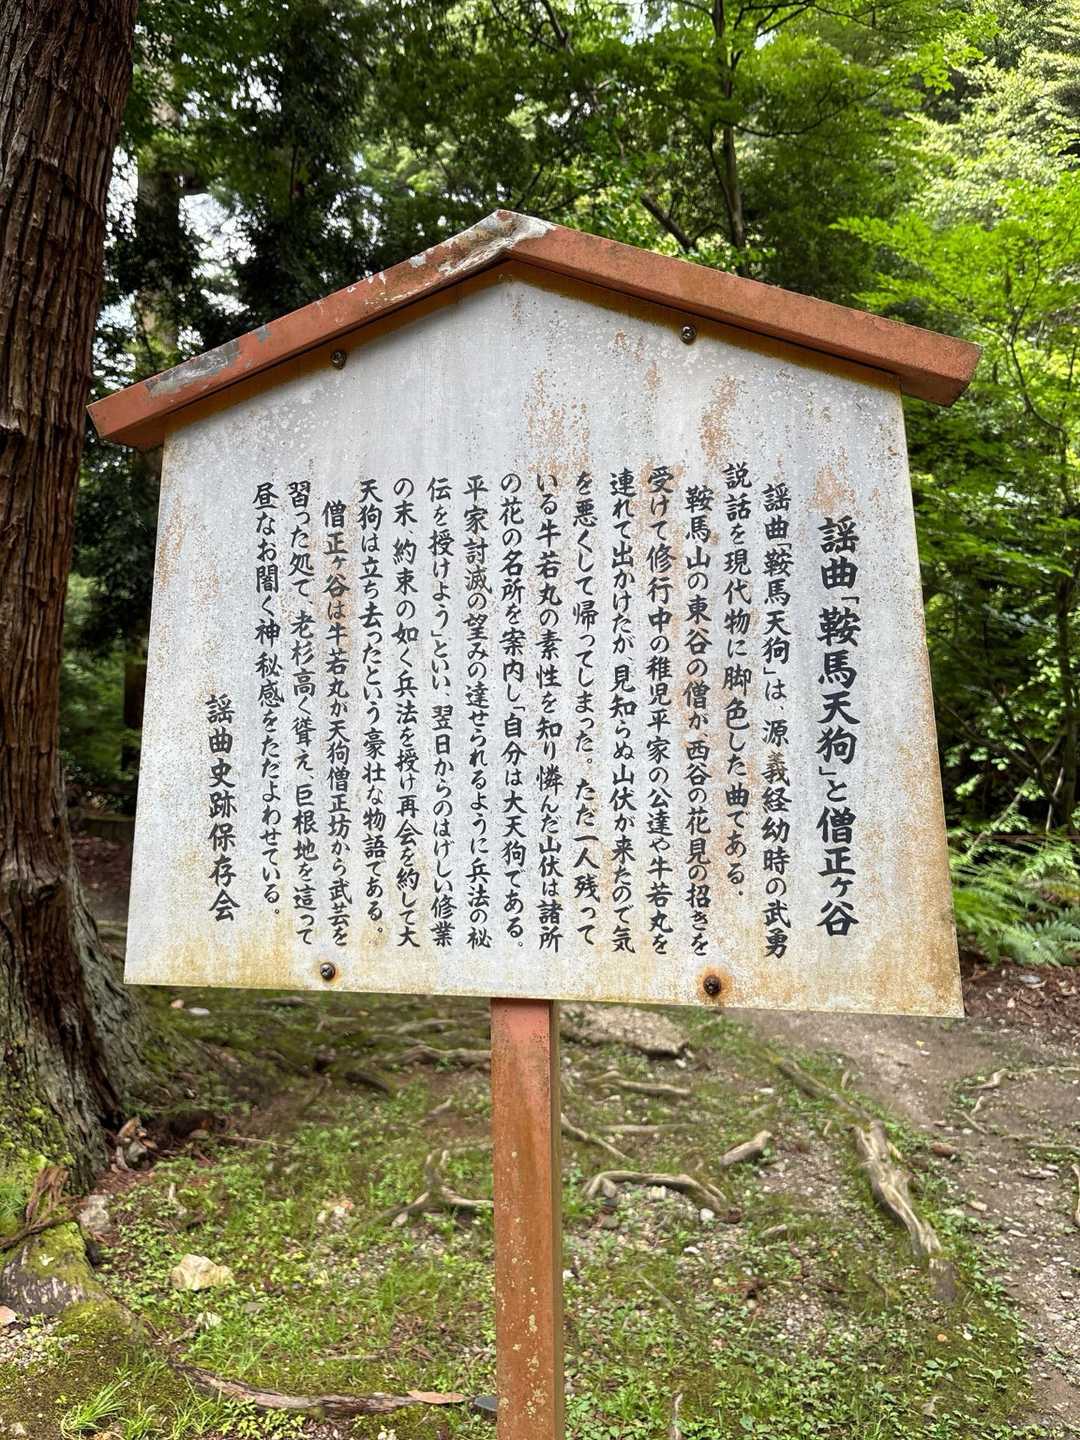 謡曲「鞍馬天狗」と僧正ヶ谷
謡曲「鞍馬天狗」は、源義経幼時の武勇
説話を現代物に脚色した曲である。
鞍馬山の東谷の僧が、西谷の花見の招きを
受けて修行中の稚児平家の公達や牛若丸を
連れて出かけたが、見知らぬ山伏が来たので気
を悪くして帰ってしまった。ただ一人残って
いる牛若丸の素性を知り憐んだ山伏は諸所
の花の名所を案内し「自分は大天狗である。
平家討滅の望みの達せられるように兵法の秘
伝を授けよう」といい、翌日からのはげしい修業
の末 約束の如く兵法を授け再会を約して大
天狗は立ち去ったという豪壮な物語である。
僧正ヶ谷は牛若丸が天狗僧正坊から武芸を
習った処で 老杉高く聳え、巨根地を這って
昼なお闇く神秘感をただよわせている。
謡曲史跡保存会